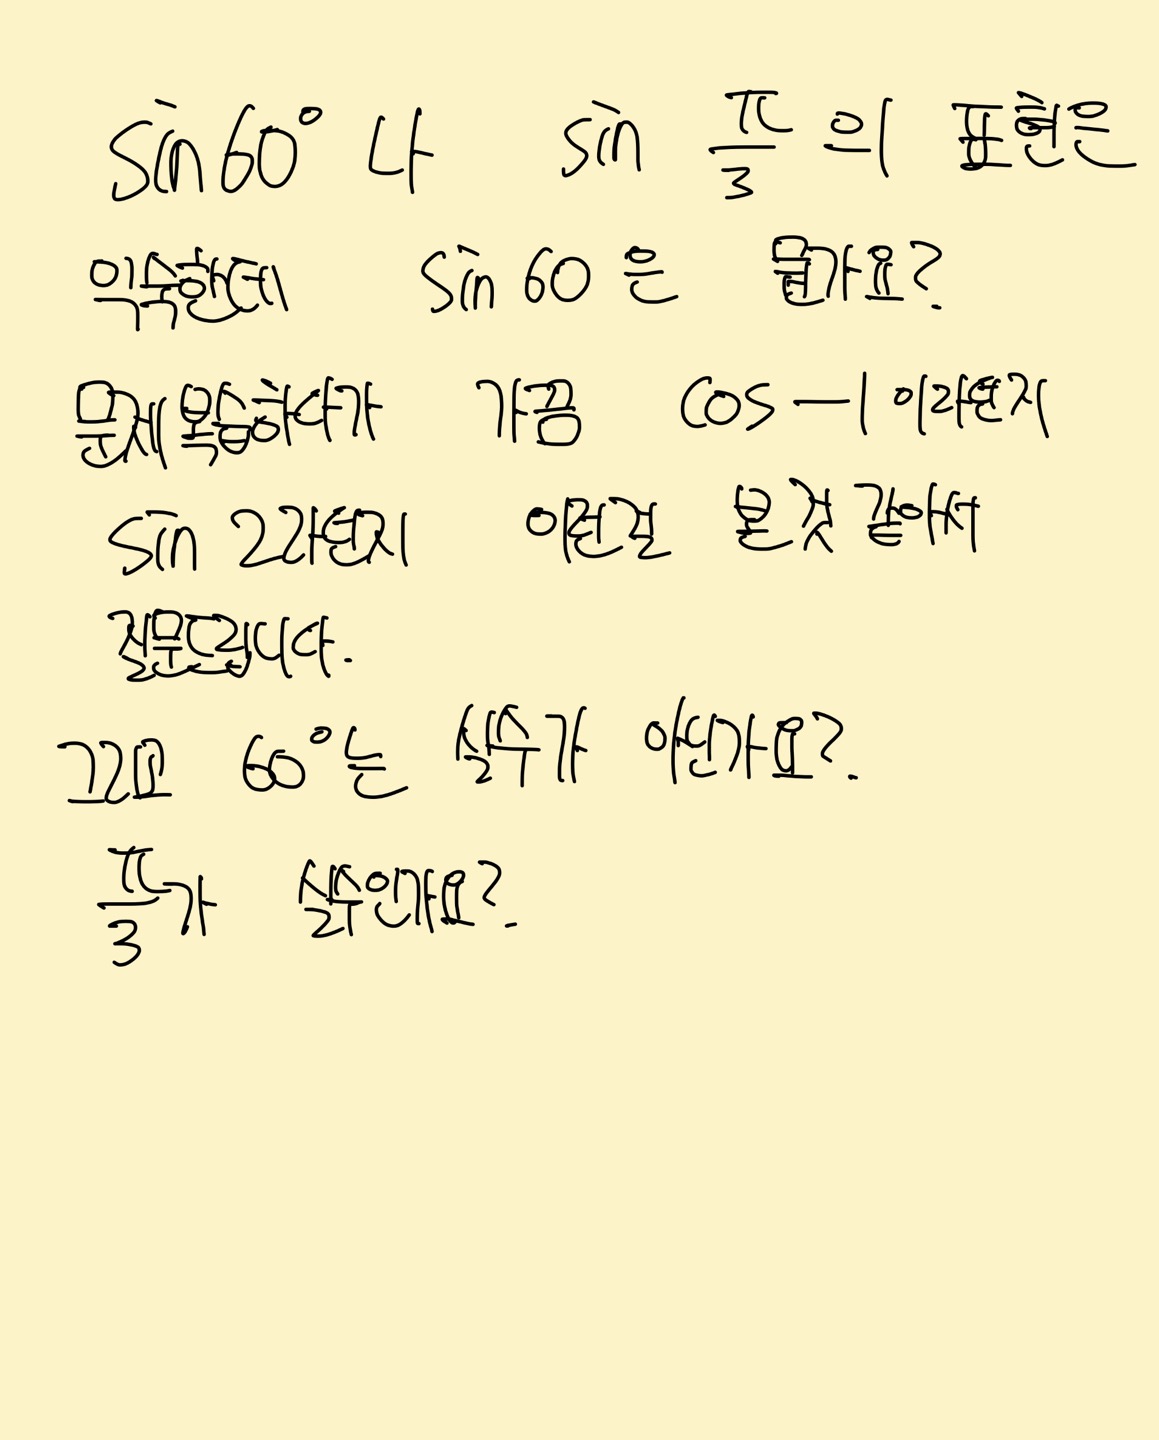 sin60° 나 sin π/3 의 표현은
익숙한데 sin 60 은 뭘가요?
문제복습하다가 가끔 cos -1 이라던지
sin 2라던지 이런걸 본 것 같아서
질문드립니다.
그리고 60°는 실수가 아닌가요?.
π/3가 실수인가요?.